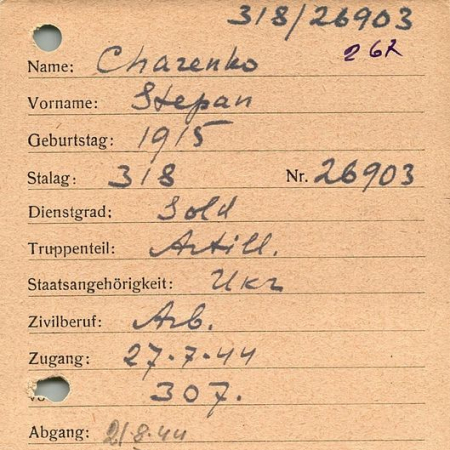 318/26903
262
Name: Charenko
Vorname: Stepan
Geburtstag: 1915
Stalag: 318 Nr. 26903
Dienstgrad: Sold
Truppenteil: Artill.
Staatsangehörigkeit: Ukr
Zivilberuf: Arb.
Zugang: 27.7.44
307.
Abgang: 21.8.44